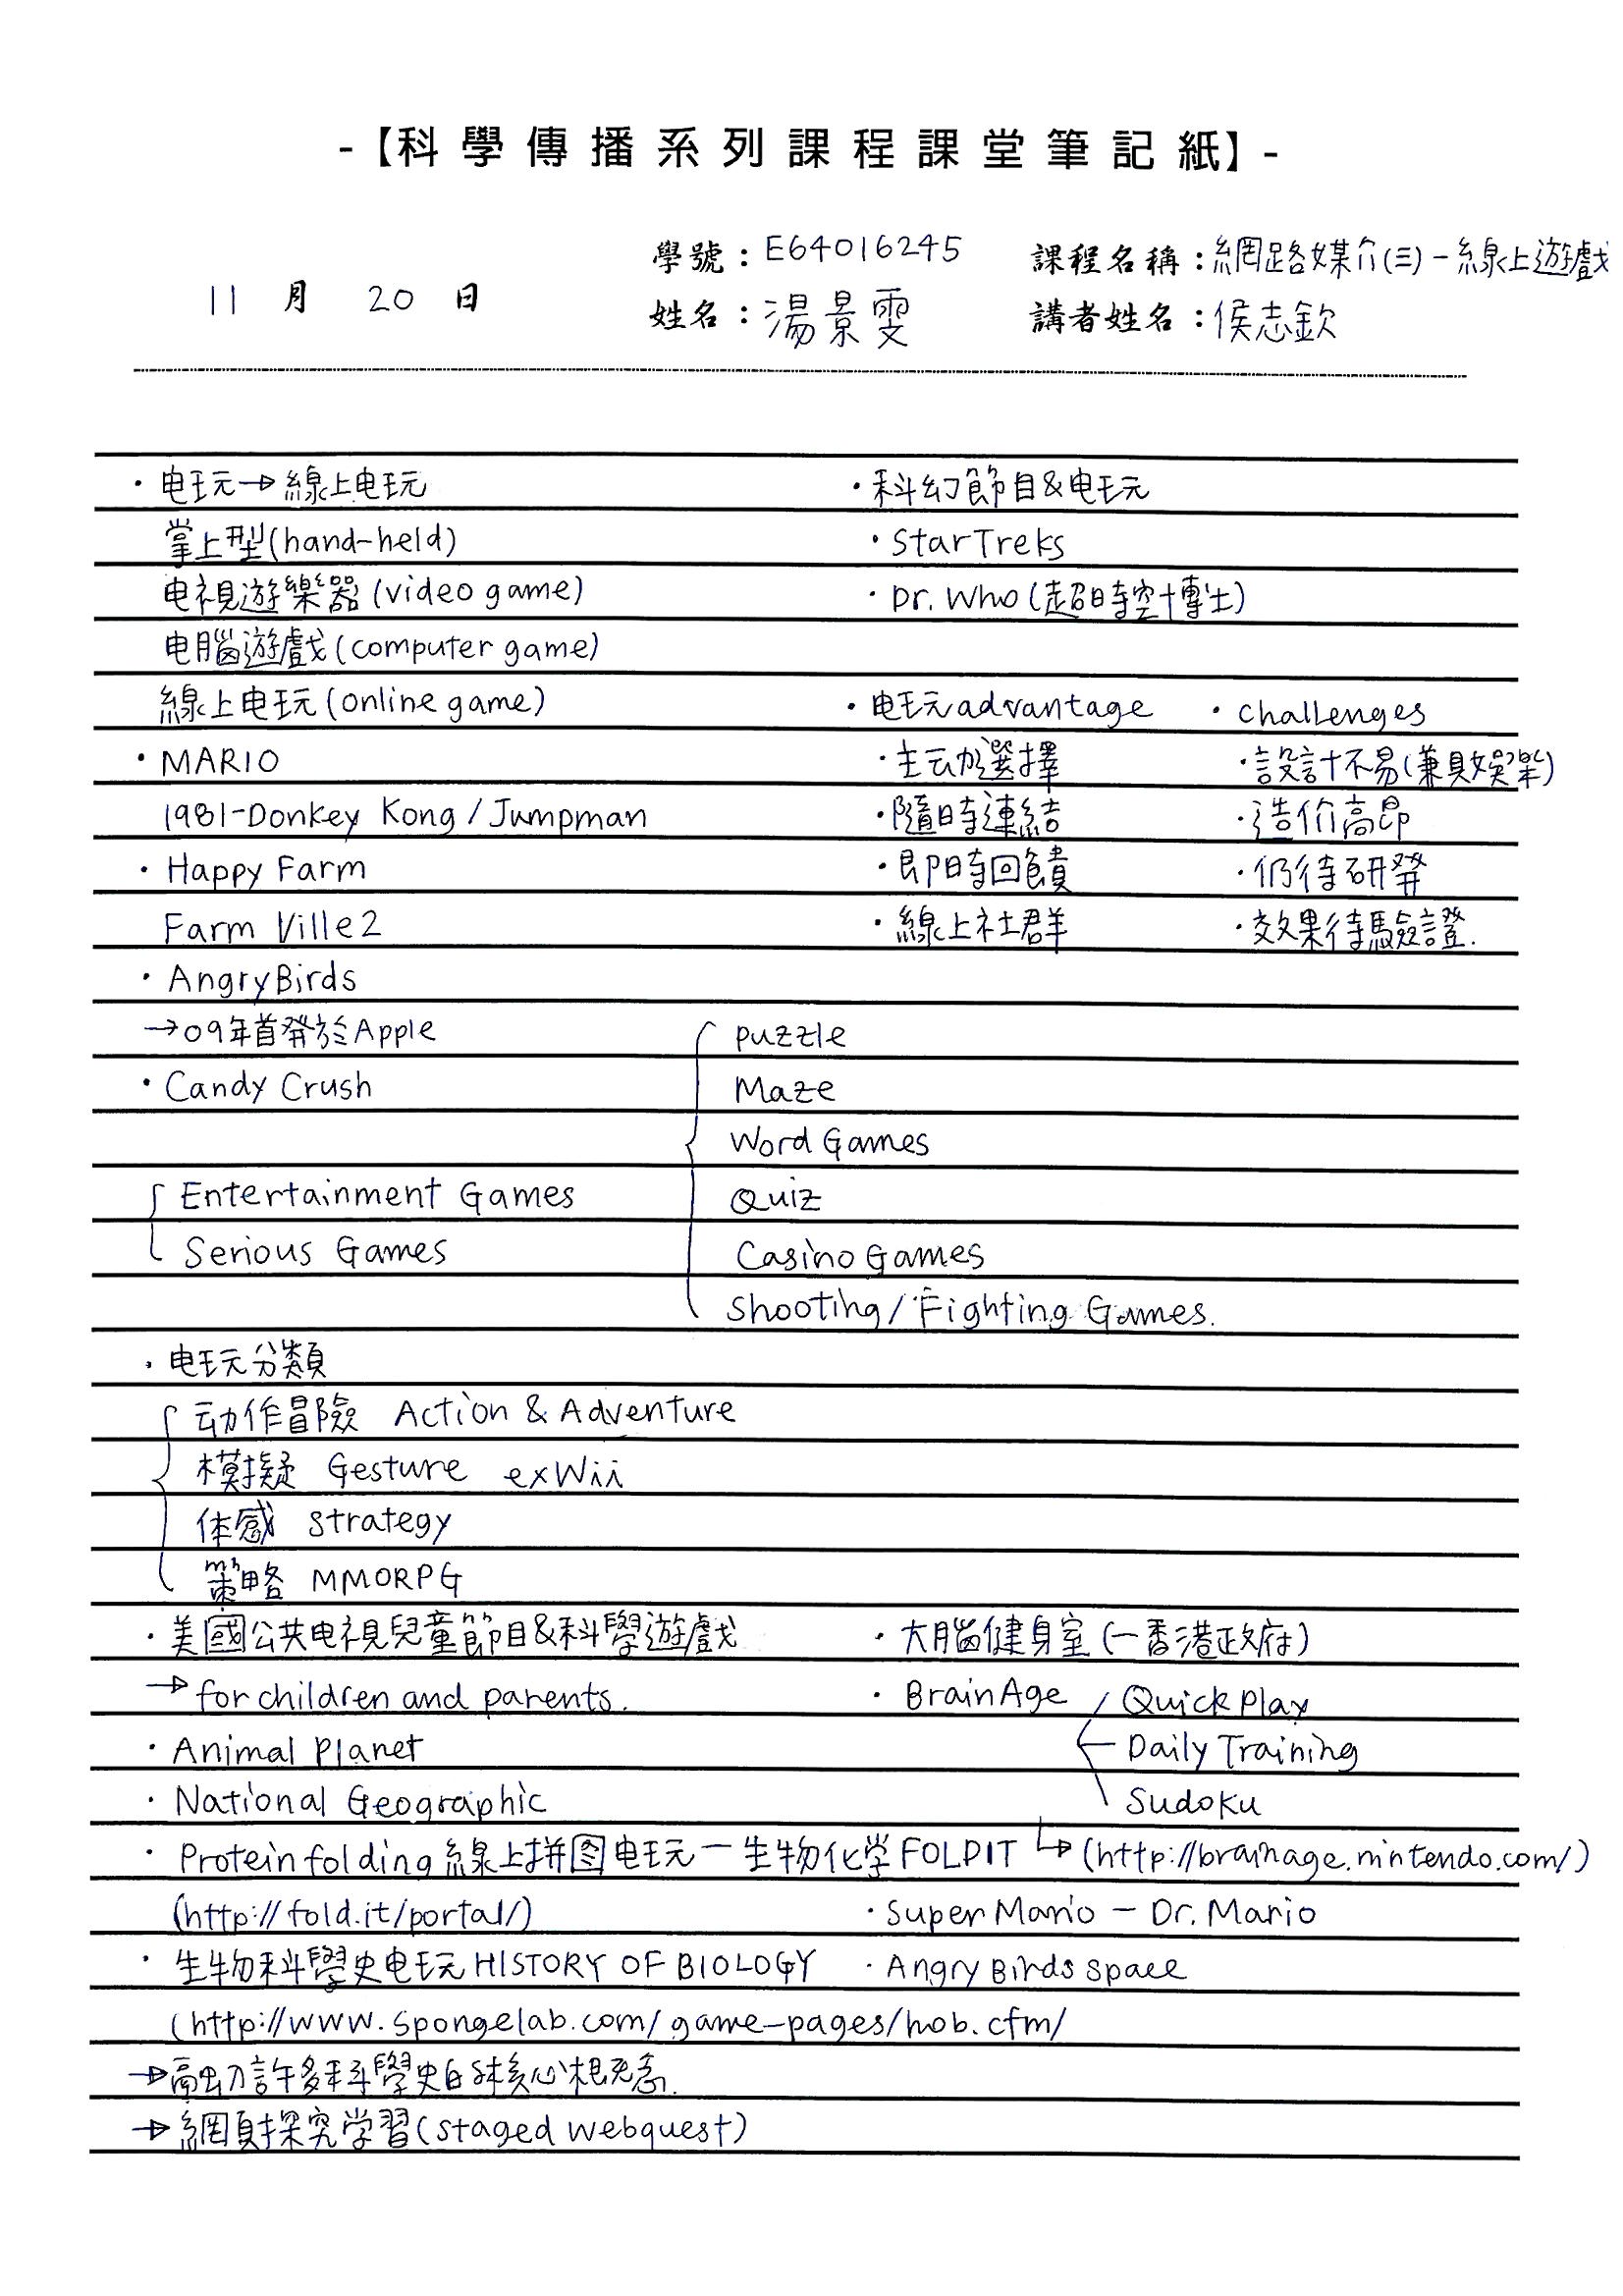 -【科學傳播系列課程課堂筆記紙】-
學號：E64016245 課程名稱：網路媒介(三)－線上遊戲
11 月 20 日 姓名：湯景雯 講者姓名：侯志欽
・电玩→線上电玩 ・科幻節目&电玩
掌上型(hand-held) ・StarTreks
电視遊樂器(video game) ・Dr. Who(超時空博士)
电腦遊戲(computer game)
線上电玩(online game) ・电玩advantage ・challenges
・MARIO ・主动選擇 ・設計不易(兼具娛樂)
1981-Donkey Kong / Jumpman ・隨時連結 ・造价高昂
・Happy Farm ・即時回饋 ・仍待研發
Farm Ville2 ・線上社群 ・效果待驗證.
・AngryBirds
→09年首發於Apple puzzle
・Candy Crush Maze
Word Games
Entertainment Games Quiz
Serious Games Casino Games
Shooting/Fighting Games.
・电玩分類
动作冒險 Action & Adventure
模擬 Gesture ex Wii
体感 strategy
策略 MMORPG
・美國公共电視兒童節目&科學遊戲 ・大腦健身室(一香港政府)
→for children and parents. ・BrainAge Quick Play
・Animal Planet Daily Training
・National Geographic Sudoku
・Protein folding線上拼图电玩－生物化学FOLDIT ↳(http://brainage.nintendo.com/)
(http://fold.it/portal/) ・Super Mario － Dr. Mario
・生物科學史电玩HISTORY OF BIOLOGY ・Angry Birds space
(http://www.spongelab.com/game-pages/hob.cfm/
→融許多科學史的核心概念.
→網頁探究学習(staged webquest)